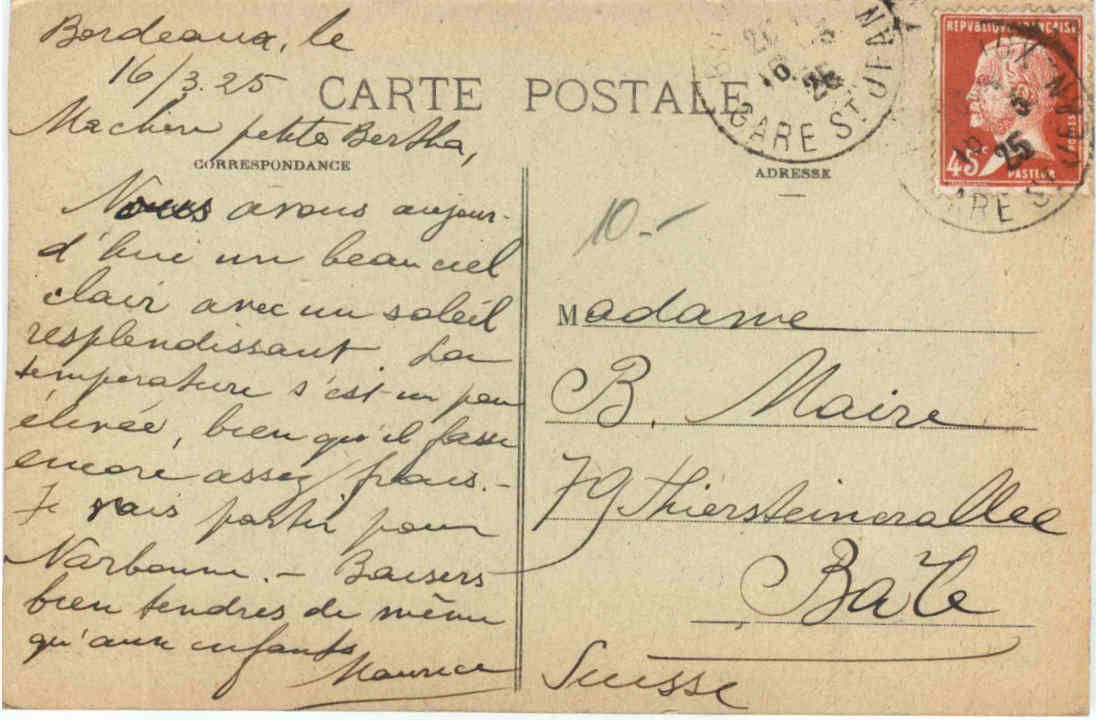 Bordeaux, le
16/3.25
CARTE POSTALE
Ma chère petite Bertha,
CORRESPONDANCE
Nous avons aujour-
d'hui un beau ciel
clair avec un soleil
resplendissant. La
température s'est un peu
élevée, bien qu'il fasse
encore assez frais.-
Je vais partir pour
Narbonne. - Baisers
bien tendres de même
qu'aux enfants
Maurice
ADRESSE
10.-
Madame
B. Maire
79 Thiersteinerallee
Bâle
Suisse
GARE ST JEAN
16 25
REPUBLIQUE FRANÇAISE
POSTES
45c
PASTEUR
GARE ST JEAN
25